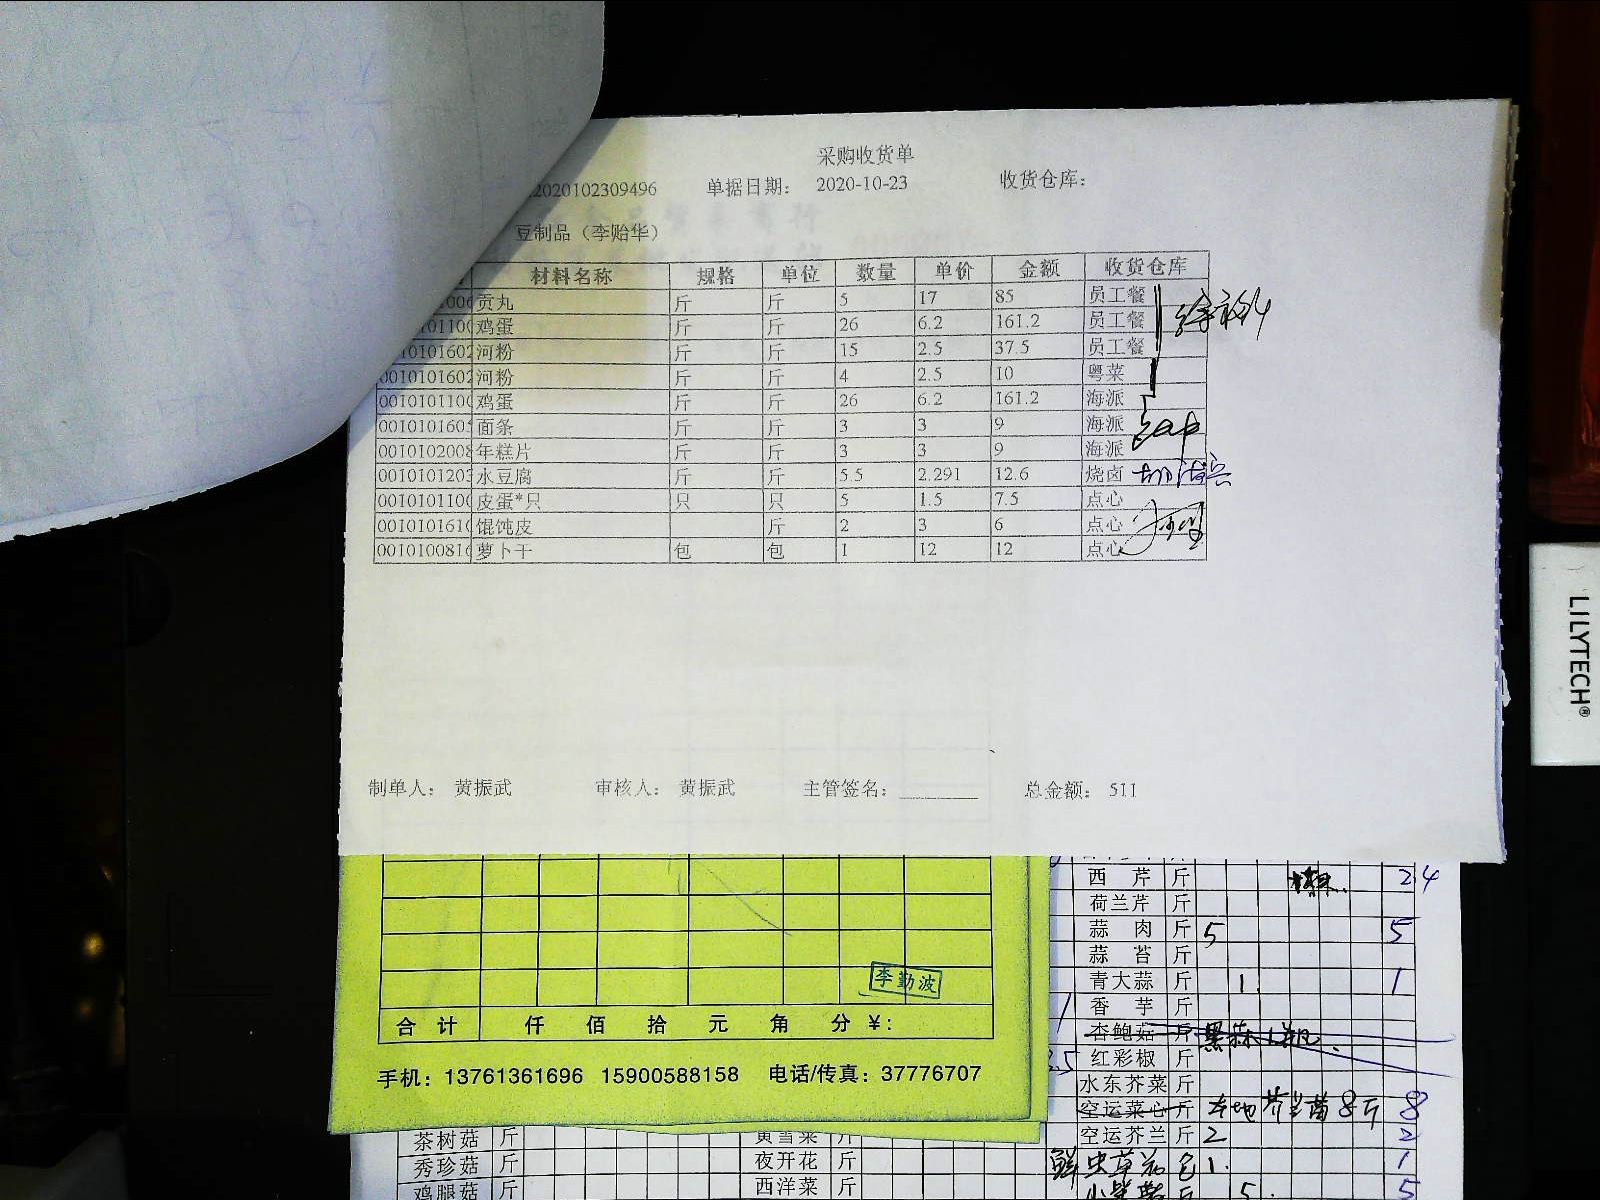 采购收货单
2020102309496 单据日期： 2020-10-23 收货仓库：
豆制品（李贻华）
材料名称 规格 单位 数量 单价 金额 收货仓库
贡丸 斤 斤 5 17 85 员工餐
鸡蛋 斤 斤 26 6.2 161.2 员工餐
0101602 河粉 斤 斤 15 2.5 37.5 员工餐
0010101602 河粉 斤 斤 4 2.5 10 粤菜
001010110 鸡蛋 斤 斤 26 6.2 161.2 海派
001010160 面条 斤 斤 3 3 9 海派
0010102008 年糕片 斤 斤 3 3 9 海派
001010120 水豆腐 斤 斤 5.5 2.291 12.6 烧卤
001010110 皮蛋*只 只 只 5 1.5 7.5 点心
001010161 馄饨皮 斤 2 3 6 点心
001010081 萝卜干 包 包 1 12 12 点心
制单人： 黄振武 审核人： 黄振武 主管签名： 总金额： 511
李勤波
合 计 仟 佰 拾 元 角 分 ¥:
手机：13761361696 15900588158 电话/传真：37776707
西 芹 斤 24
荷兰芹 斤
蒜 肉 斤 5 5
蒜 苔 斤
青大蒜 斤 1. 1
香 芋 斤
杏鲍菇 斤
红彩椒 斤
水东芥菜 斤
空运菜心 斤 本地芥兰苗8斤 8
空运芥兰 斤 2 2
鲜虫草花 包 1. 1
斤 5. 5
茶树菇 斤 黄雪菜 斤
秀珍菇 斤 夜开花 斤
鸡腿菇 斤 西洋菜 斤
LILYTECH®